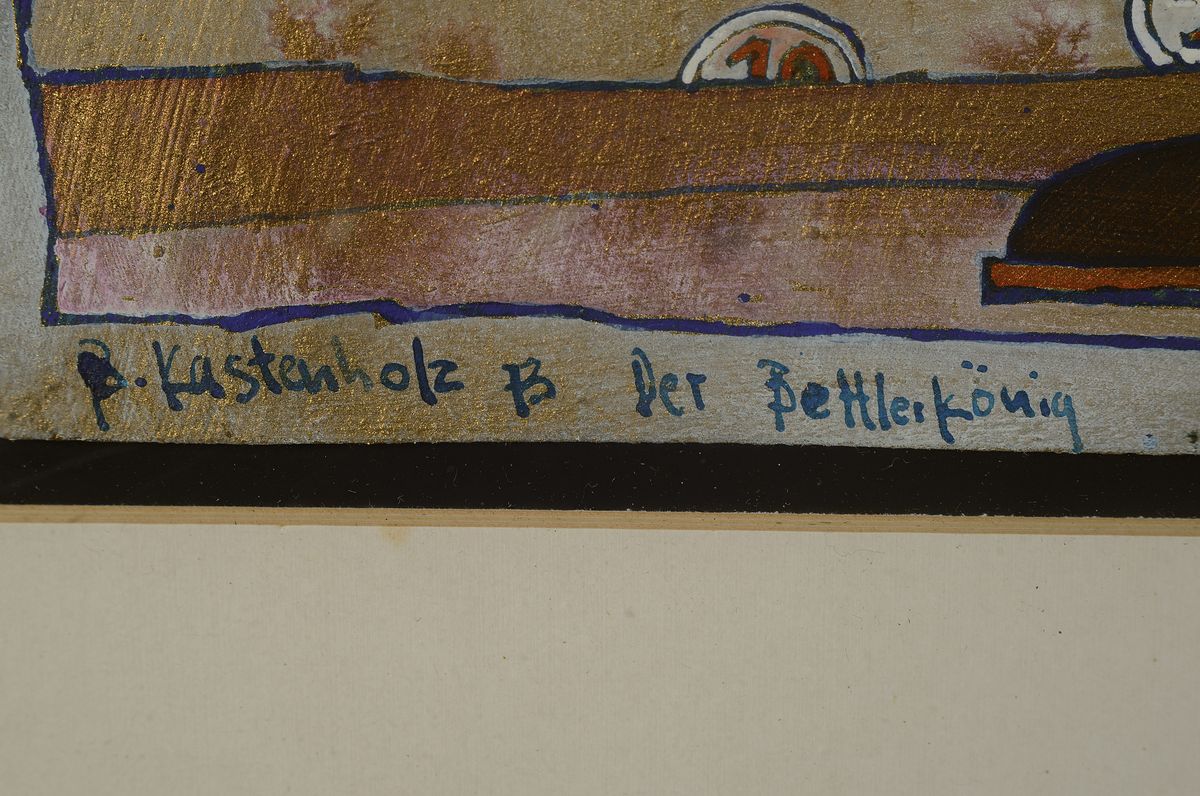 10
B. Kastenholz 73 Der Bettlerkönig